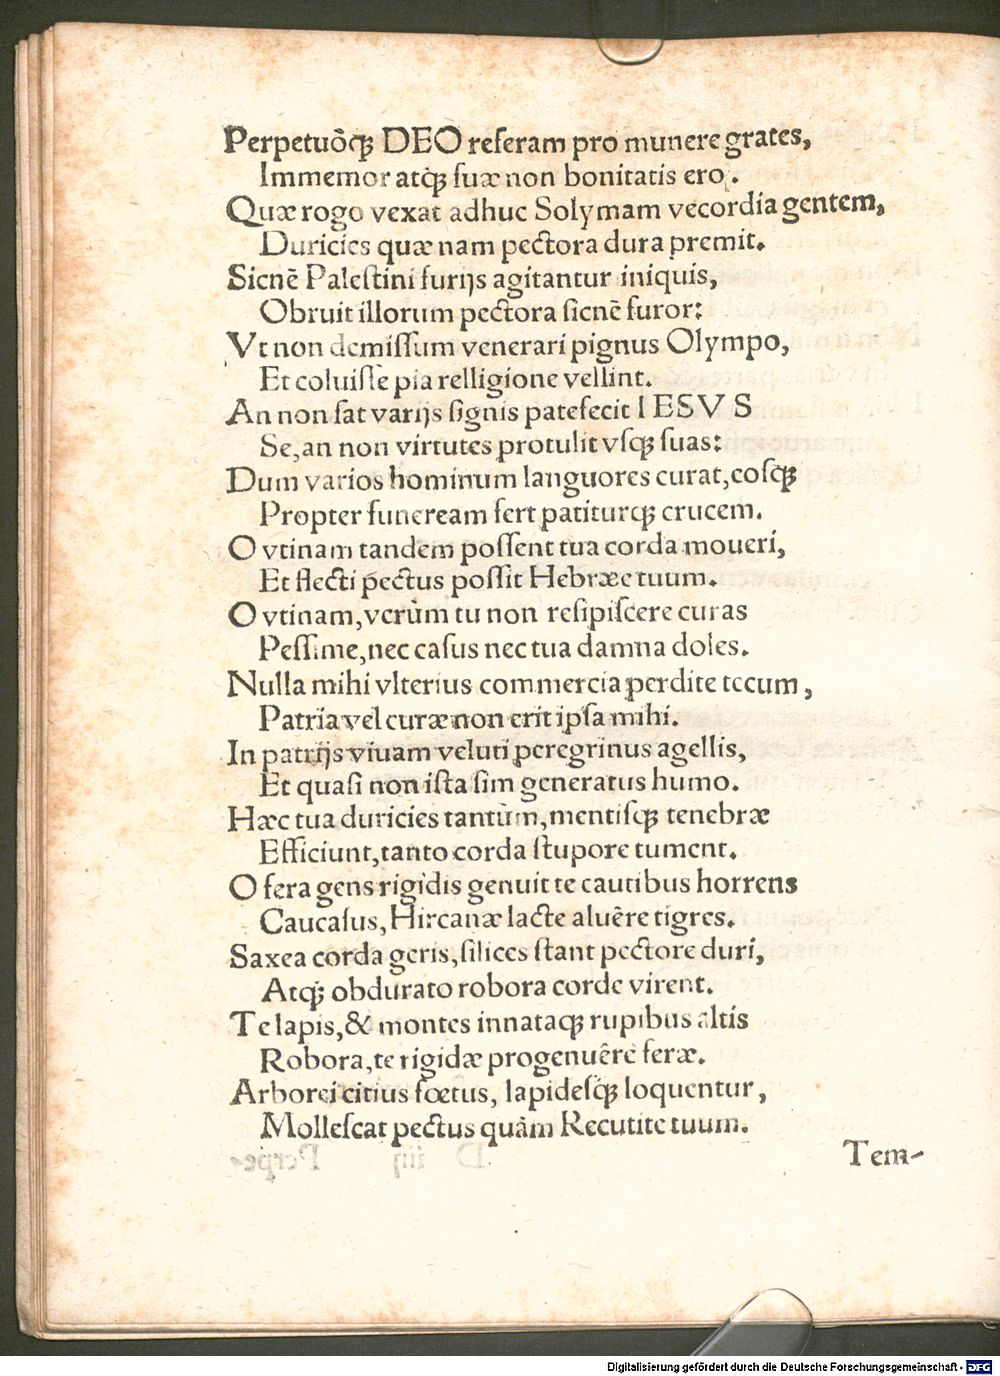 Perpetuōqꝫ DEO referam pro munere grates,
Immemor atqꝫ suæ non bonitatis ero.
Quæ rogo vexat adhuc Solymam vecordia gentem,
Duricies quæ nam pectora dura premit.
Sicnē Palestini furijs agitantur iniquis,
Obruit illorum pectora sicnē furor:
Vt non demiſſum venerari pignus Olympo,
Et coluiſſe pia relligione vellint.
An non ſat varijs ſignis patefecit IESVS
Se, an non virtutes protulit vſqꝫ ſuas:
Dum varios hominum languores curat, eoſqꝫ
Propter funeream fert patiturqꝫ crucem.
O vtinam tandem poſſent tua corda moueri,
Et flecti pectus poſſit Hebræe tuum.
O vtinam, verùm tu non reſipiſcere curas
Peſſime, nec caſus nec tua damna doles.
Nulla mihi vlterius commercia perdite tecum,
Patria vel curæ non erit ipſa mihi.
In patrijs viuam veluti peregrinus agellis,
Et quaſi non iſta ſim generatus humo.
Hæc tua duricies tantùm, mentiſqꝫ tenebræ
Efficiunt, tanto corda ſtupore tument.
O fera gens rigidis genuit te cautibus horrens
Caucaſus, Hircanæ lacte aluēre tigres.
Saxea corda geris, ſilices ſtant pectore duri,
Atqꝫ obdurato robora corde virent.
Te lapis, & montes innataqꝫ rupibus altis
Robora, te rigidæ progenuēre feræ.
Arborei citius fœtus, lapideſqꝫ loquentur,
Molleſcat pectus quàm Recutite tuum.
Tem-
Digitalisierung gefördert durch die Deutsche Forschungsgemeinschaft - DFG